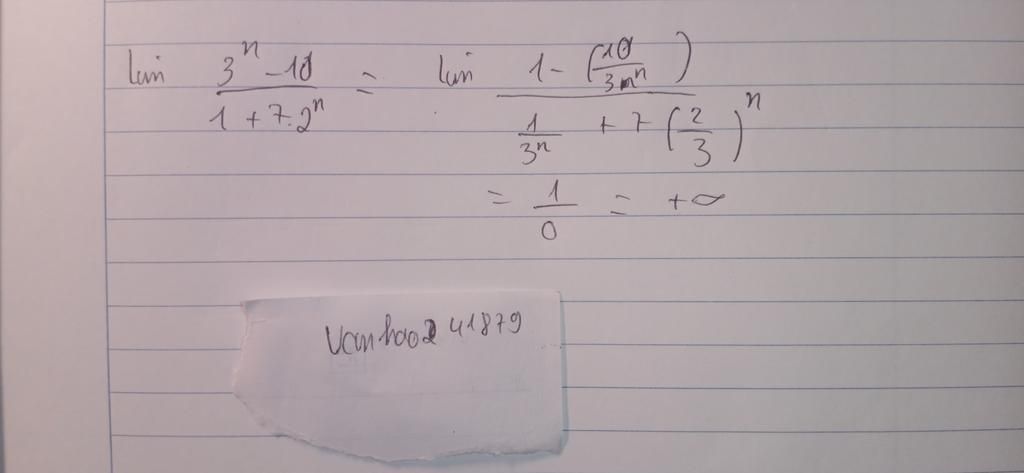 lim (3^n - 10)/(1 + 7.2^n) = lim (1 - (10/3^n))/(1/3^n + 7(2/3)^n)
= 1/0 = +∞
Vanhoo2 41879